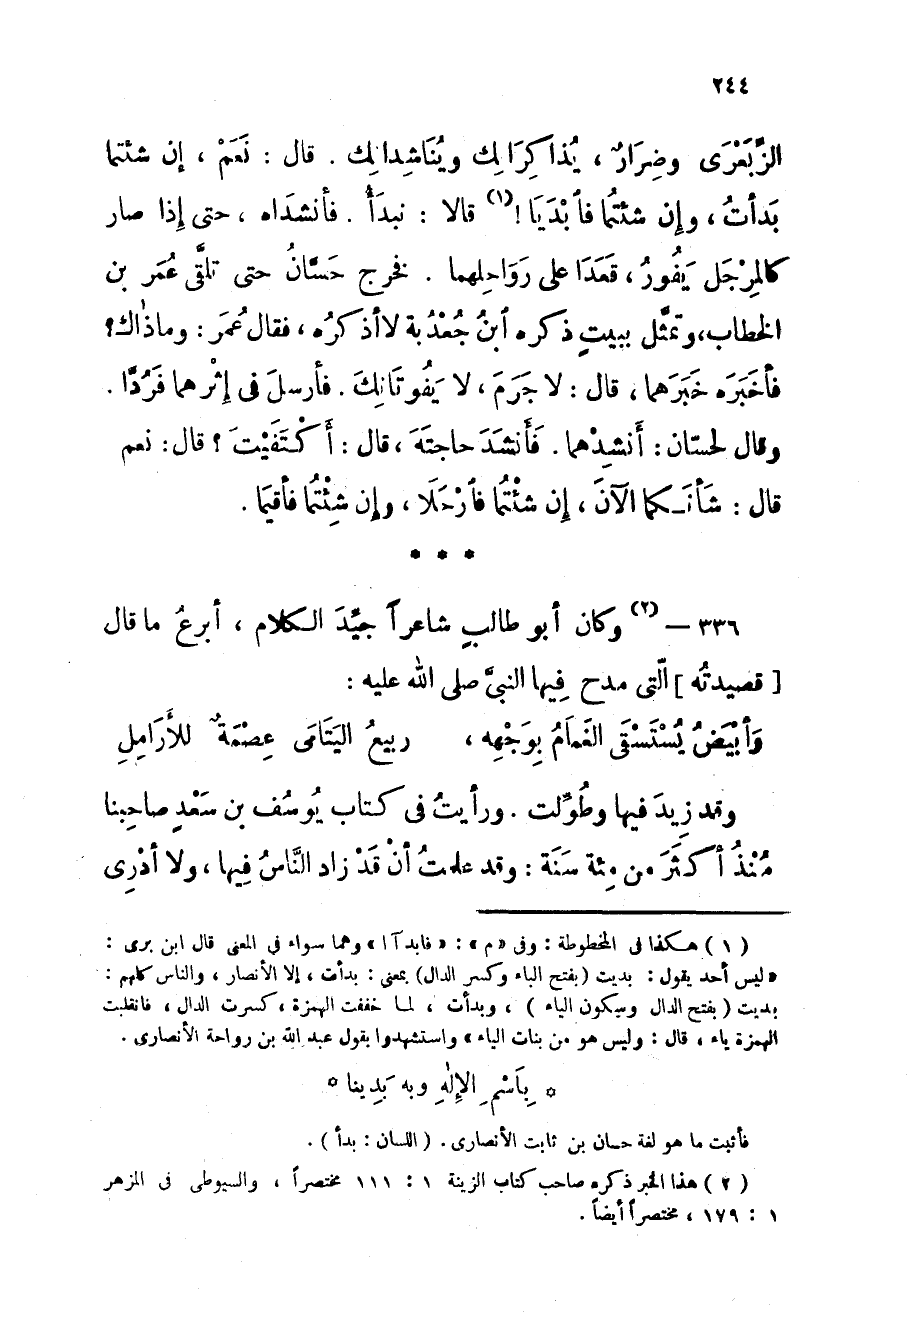 ٢٤٤
الزِّبَعْرَى وضِرَارٌ ، يُذاكِرَانِك ويُنَاشِدانِك . قال : نَعَمْ ، إن شئتما
بَدأتُ ، وإن شئتُما فاَبْدَيَا !(١) قالا : نبدَأُ . فأنشدَاه ، حتى إذا صار
كالمِرْجَل يَفُورُ ، قَعَدَا على رَوَاحِلِهما . فخرج حَسَّانُ حتى تلقَّى عُمَر بن
الخطاب، وتمثَّل ببيتٍ ذكره ابنُ جُعْدُبة لا أذكرُه ، فقال عُمَر : وما ذاك؟
فأخبَرَه خَبَرَهما ، قال : لا جَرَمَ ، لا يَفُوتَانِكَ . فأرسلَ في إثْرِهما فَرُدَّا .
وقال لحسّان : أَنشِدْهما . فَأَنشَدَ حاجتَهَ ، قال : أَكْتَفَيْتَ ؟ قال : نعم
قال : شَأنَكما الآنَ ، إن شئتُما فاَرْحَلَا ، وإن شِئْتُما فأقيما .
* * *
٣٣٦ — (٢) وكان أبو طالبٍ شاعراً جيِّدَ الكلام ، أبرعُ ما قال
[ قصيدتُه ] الّتي مدح فِيها النبيَّ صلى الله عليه :
وَأبْيَضُ يُسْتَسْقَى الغَمَامُ بِوَجْهِه ، ربيعُ اليَتَامَى عِصْمَةٌ للأَرَامِلِ
وقد زِيدَ فيها وطُوِّلت . ورأيتُ في كتاب يُوسُف بن سَعْدٍ صاحِبنا
مُنْذُ أكثَرَ من مِئة سَنَة : وقد علمتُ أنْ قَدْ زاد النَّاسُ فِيها ، ولا أدْرِى
( ١ ) هكذا في المخطوطة : وفي « م » : « فابدآ ا » وهما سواء في المعنى قال ابن برى :
« ليس أحد يقول : بديت ( بفتح الباء وكسر الدال ) بمعنى : بدأت ، إلا الأنصار ، والناس كلهم :
بديت ( بفتح الدال وسكون الياء ) ، وبدأت ، لما خففت الهمزة ، كسرت الدال ، فانقلبت
الهمزة ياء ، قال : وليس هو من بنات الياء » واستشهدوا بقول عبد الله بن رواحة الأنصارى .
* بِاَسْمِ الإلٰهِ وبه بَدِينا *
فأثبت ما هو لغة حسان بن ثابت الأنصارى . ( اللسان : بدأ ) .
( ٢ ) هذا الخبر ذكره صاحب كتاب الزينة ١ : ١١١ مختصراً ، والسيوطى في المزهر
١ : ١٧٩ ، مختصراً أيضاً .